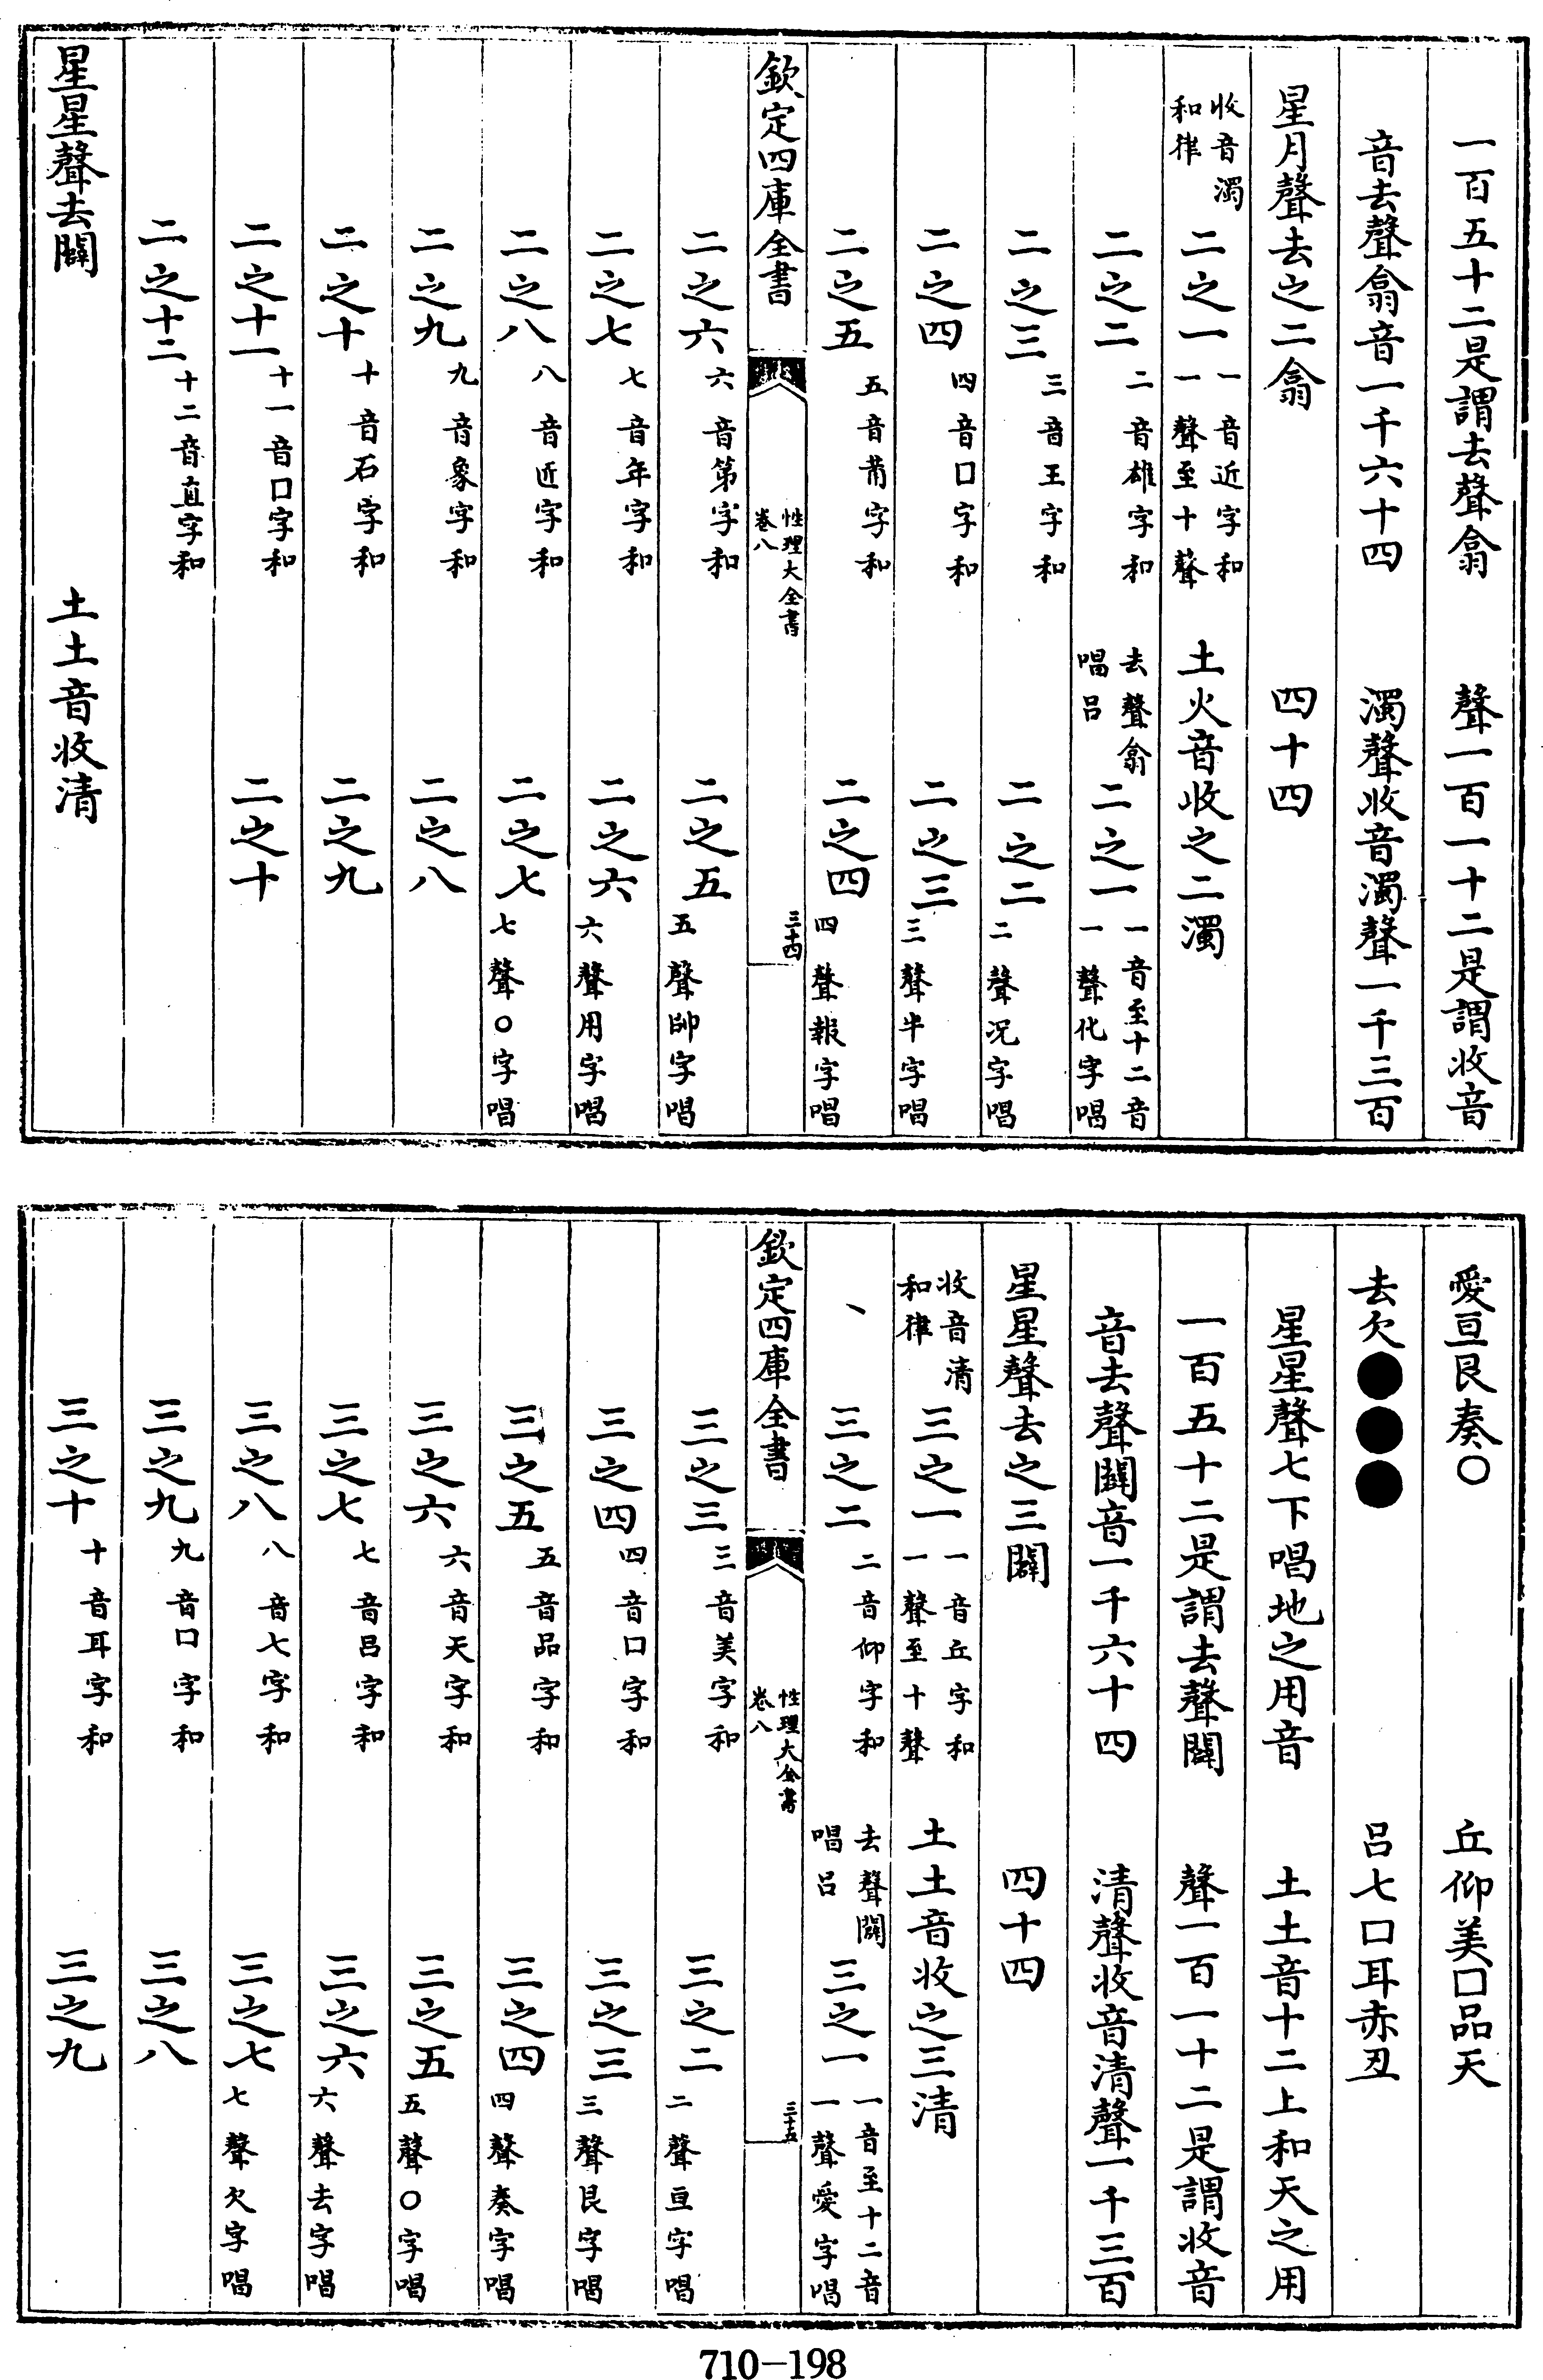 一百五十二是謂去聲翕　聲一百一十二是謂收音
音去聲翕音一千六十四　濁聲收音濁聲一千三百
星月聲去之二翕　四十四
收音濁和律　二之一　一音近字和一聲至十聲　土火音收之二濁
二之二　二音雄字和　去聲翕唱呂　二之一　一音至十二音一聲化字唱
二之三　三音王字和　二之二　二聲况字唱
二之四　四音口字和　二之三　三聲半字唱
二之五　五音莆字和　二之四　四聲報字唱
欽定四庫全書　性理大全書卷八　三十四
二之六　六音第字和　二之五　五聲帥字唱
二之七　七音年字和　二之六　六聲用字唱
二之八　八音匠字和　二之七　七聲○字唱
二之九　九音象字和　二之八
二之十　十音石字和　二之九
二之十一　十一音口字和　二之十
二之十二　十二音直字和
星星聲去闢　土土音收清
愛亘艮奏○　丘仰美口品天
去欠●●●　呂七口耳赤丑
星星聲七下唱地之用音　土土音十二上和天之用
一百五十二是謂去聲闢　聲一百一十二是謂收音
音去聲闢音一千六十四　清聲收音清聲一千三百
星星聲去之三闢　四十四
收音清和律　三之一　一音丘字和一聲至十聲　土土音收之三清
三之二　二音仰字和　去聲闢唱呂　三之一　一音至十二音一聲愛字唱
欽定四庫全書　性理大全書卷八　三十五
三之三　三音美字和　三之二　二聲亘字唱
三之四　四音口字和　三之三　三聲艮字唱
三之五　五音品字和　三之四　四聲奏字唱
三之六　六音天字和　三之五　五聲○字唱
三之七　七音呂字和　三之六　六聲去字唱
三之八　八音七字和　三之七　七聲欠字唱
三之九　九音口字和　三之八
三之十　十音耳字和　三之九
710-198